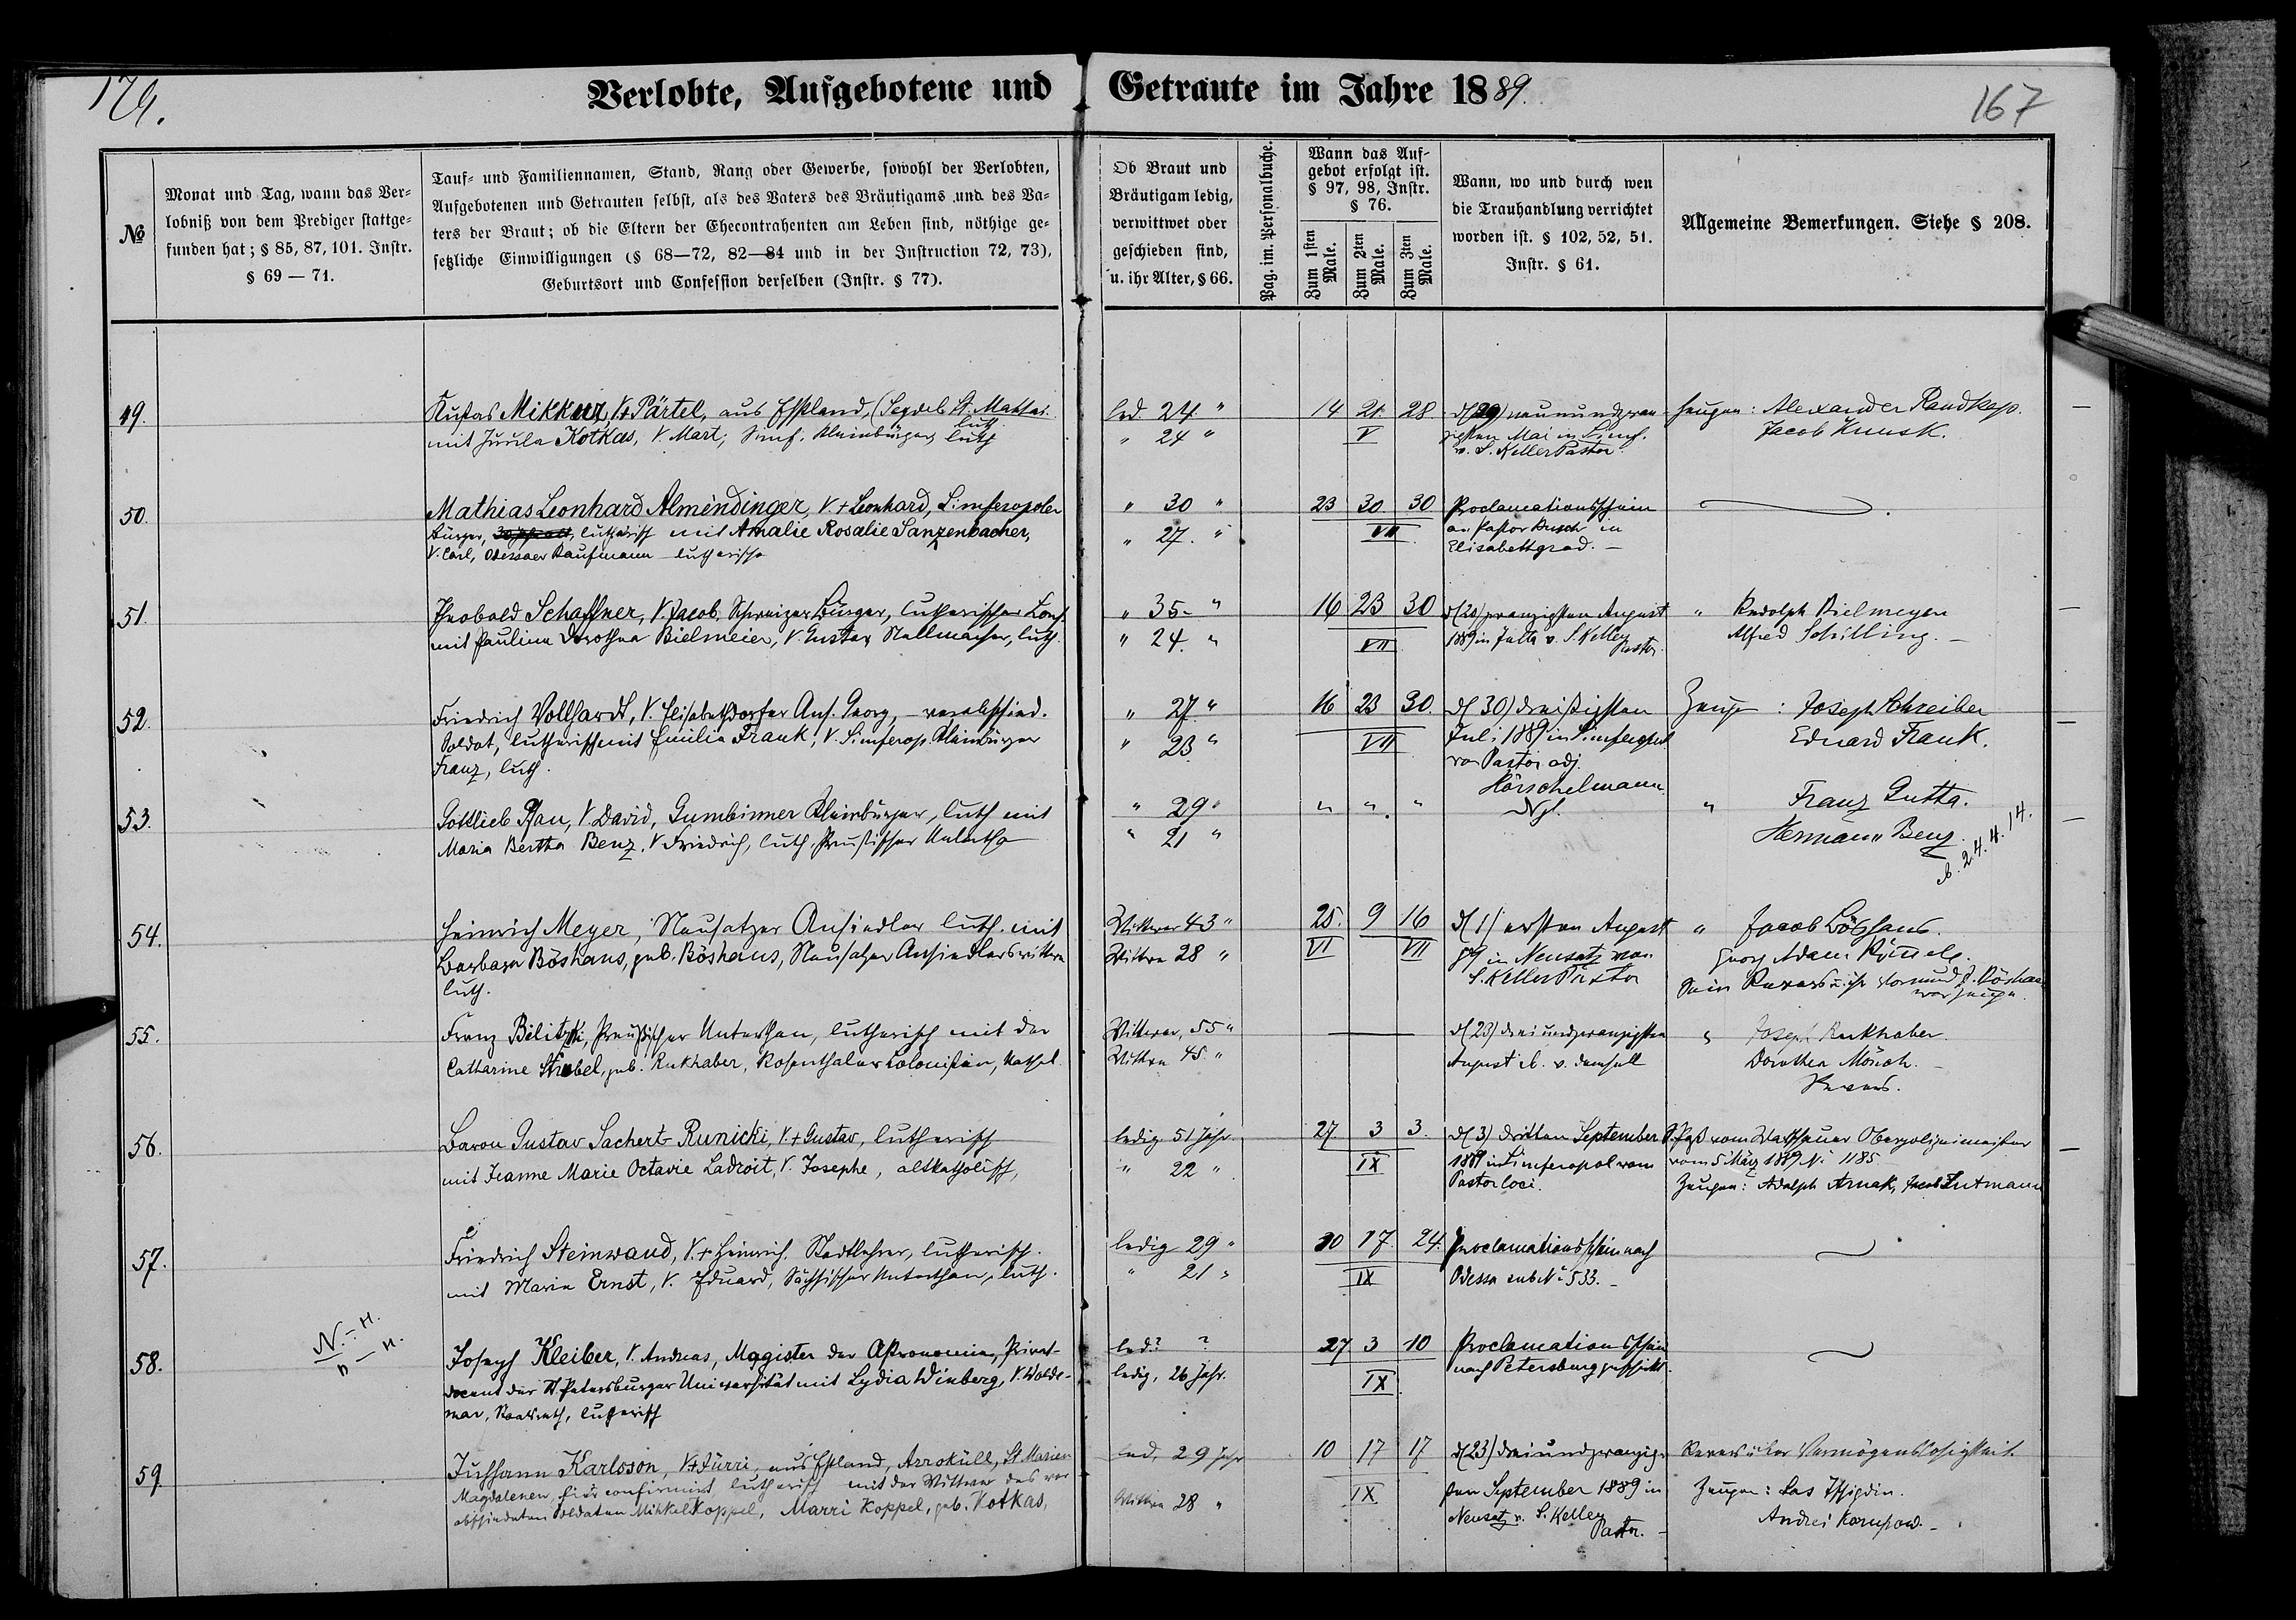 174.
Verlobte, Aufgebotene und Getraute im Jahre 1889.
167
№
Monat und Tag, wann das Ver-
lobniß von dem Prediger stattge-
funden hat; § 85, 87, 101. Instr.
§ 69 — 71.
Tauf- und Familiennamen, Stand, Rang oder Gewerbe, sowohl der Verlobten,
Aufgebotenen und Getrauten selbst, als des Vaters des Bräutigams und des Va-
ters der Braut; ob die Eltern der Ehecontrahenten am Leben sind, nöthige ge-
setzliche Einwilligungen (§ 68—72, 82—84 und in der Instruction 72, 73),
Geburtsort und Confession derselben (Instr. § 77).
Ob Braut und
Bräutigam ledig,
verwittwet oder
geschieden sind,
u. ihr Alter, § 66.
Pag. im Personalbuche.
Wann das Auf-
gebot erfolgt ist.
§ 97, 98, Instr.
§ 76.
Zum 1sten Male.
Zum 2ten Male.
Zum 3ten Male.
Wann, wo und durch wen
die Trauhandlung verrichtet
worden ist. § 102, 52, 51.
Instr. § 61.
Allgemeine Bemerkungen. Siehe § 208.
49.
Kustas Mikkuz, V+ Pärtel, aus Estland, St. Mattai luth
mit Kotkas, V. Mart, Simf. Kleinbürger, luth
led. 24 "
" 24 "
14 21 28
V
d (29) neunundzwan-
zigsten Mai in Simf.
v. S. Keller Pastor.
Zeugen: Alexander Randkap.
Jacob Kunsk.
50.
Mathias Leonhard Almendinger, V. + Leonhard, Simferopoler
Bürger, lutherisch mit Amalie Rosalie Sanzenbacher,
V. Carl, Odessaer Kaufmann lutherisch
" 30 "
" 27. "
23 30 30
VII
Proclamationsschein
an Pastor Busch in
Elisabethgrad. —
51.
Theobald Schaffner, V. Jacob, Schweizer Bürger, lutherischer Conf.
mit Pauline Dorothea Bielmeier, V. Gustav, Stellmacher, luth.
" 35. "
" 24. "
16 23 30
VII
d (20) zwanzigsten August
1889 in Jalta v. S. Keller
Pastor.
" Rudolph Bielmeyer
Alfred Schilling. —
52.
Friedrich Vollhardt, V. Elisabethdorfer Ans. Georg, verabschied.
Soldat, lutherisch mit Emilie Frank, V. Simferop. Kleinbürger
Franz, luth.
" 27. "
" 23. "
16 23 30.
VII
d (30) dreißigsten
Juli 1889 in Simferopol
von Pastor adj.
Hörschelmann.
Zeugen: Joseph Schreiber
Eduard Frank.
53.
Gottlieb Pfau, V. David, Gumbinner Kleinbürger, luth mit
Maria Bertha Benz, V Friedrich, luth. Preußischer Unterth
" 29 "
" 21 "
" " "
" Franz Gutta.
Hermann Benz.
24. 4. 14.
54.
Heinrich Meyer, Neusatzer Ansiedler luth. mit
Barbara Böshans, geb. Böshans, Neusatzer Ansiedlerswittwe
luth.
Wittwer 43 "
Wittwe 28 "
25. 9 16
VI VII
d (1) ersten August
89 in Neusatz von
S. Keller Pastor
" Jacob Böshans.
Georg Adam
55.
Franz Bilitzki, Preußischer Unterthan, lutherisch mit der
Catharine Strobel, geb. Rukhaber, Rosenthaler Colonistin, kathol.
Wittwer, 55 "
Wittwe 45. "
d (23) dreiundzwanzigsten
August v. demsell
" Joseph Rukhaber.
Dorothea Mönch. —
Revers.
56.
Baron Gustav Sachert-Runicki, V. + Gustav, lutherisch
mit Jeanne Marie Octavie Ladroit, V. Josephe, altkatholisch,
ledig 51 Jahr.
" 22 "
27. 3 3.
IX
d (3) dritten September
1889 in Simferopol vom
Pastor loci.
Paß vom Warschauer Oberpolizeimeister
vom 5 März 1889 № 1185.
Zeugen: Adolph Arnak, Jacob Gutmann
57.
Friedrich Steinwand, V. + Heinrich, Stadtlehrer, lutherisch.
mit Maria Ernst, V. Eduard, Sächsischer Unterthan, luth.
ledig 29 "
" 21 "
30 17. 24.
IX
Proclamationsschein nach
Odessa sub № 533. —
58.
Joseph Kleiber, V. Andreas, Magister der Astronomie, Privat-
docent der St. Petersburger Universität mit Lydia Winberg, V. Wolde-
mar, Staatsrath, lutherisch
led? ?
ledig, 26 Jahr.
27 3 10
IX
Proclamationsschein
nach Petersburg geschickt.
59.
Juhann Karlsson, V+ Jürri, aus Estland, Arroküll, St Marien
Magdalenen, hier confirmirt, lutherisch mit der Wittwe des ver
abschiedeten Soldaten Mihkel Koppel, Marri Koppel, geb. Kotkas,
led. 29 Jahr
Wittwe 28 "
10 17 17
IX
d (23) dreiundzwanzig-
sten September 1889 in
Neusatz v. S. Keller
Pastor. —
Revers über Vermögenslosigkeit.
Zeugen:
Andrei